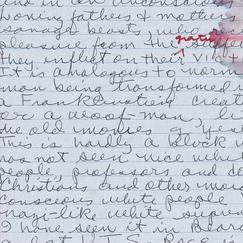 loving fathers & mothers
savage beasts, w
pleasure from the
gratu
they inflict on their vict
It is analogous to norm
man being transformed
a Frankenstein creat
or a woof-man, li
the old movies of yes
This is hardly a block
has not seen nice whi
people, professors and do
Christians and other mor
conscious white people
nazi-like white supre
I have seen it in Blair